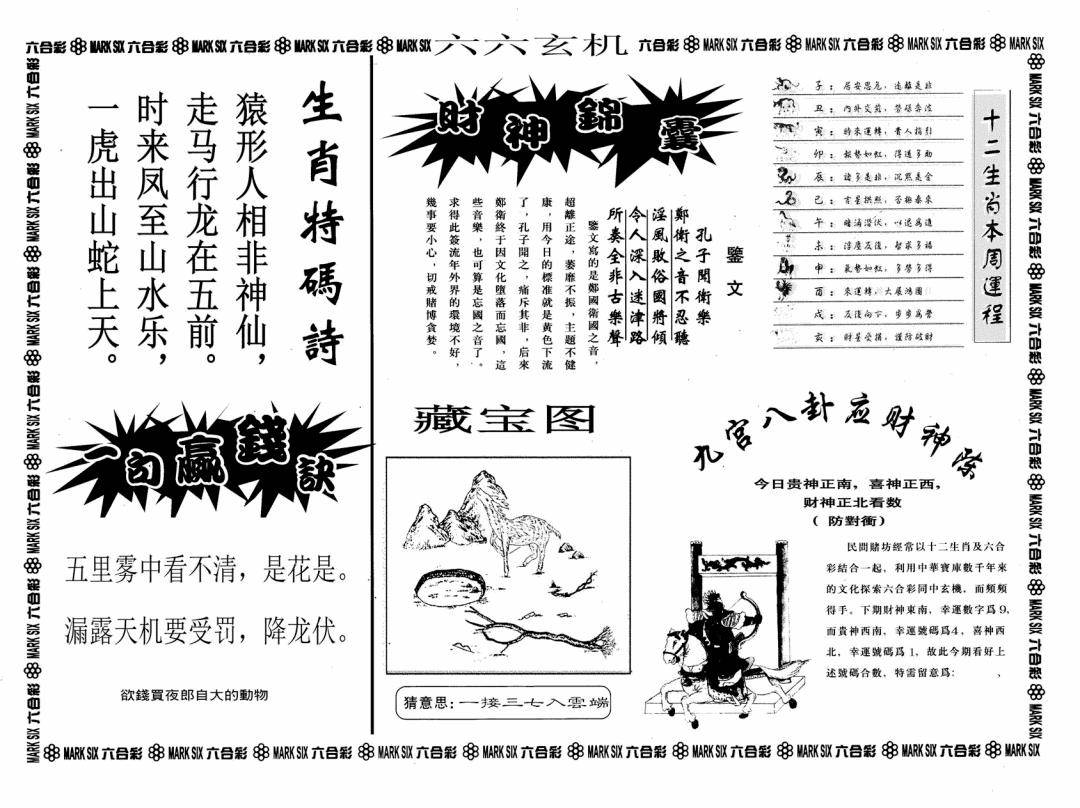 六合彩 MARK SIX 六合彩 MARK SIX 六合彩 MARK SIX 六合彩 MARK SIX 六六玄机 六合彩 MARK SIX 六合彩 MARK SIX 六合彩 MARK SIX 六合彩 MARK SIX
生肖特碼詩
猿形人相非神仙，
走马行龙在五前。
时来凤至山水乐，
一虎出山蛇上天。
一句贏錢訣
五里雾中看不清，是花是。
漏露天机要受罚，降龙伏。
欲錢買夜郎自大的動物
財神錦囊
鑒文
孔子聞衛樂
鄭衛之音不忍聽
淫風敗俗國將傾
令人深入迷津路
所奏全非古樂聲
鑒文寫的是鄭國衛國之音，
超離正途，萎靡不振，主題不健
康，用今日的標准就是黄色下流
了，孔子聞之，痛斥其非，后來
鄭衛終于因文化墮落而忘國，這
些音樂，也可算是忘國之音了。
求得此簽流年外界的環境不好，
幾事要小心，切戒賭博貪婪。
藏宝图
猜意思：一接三七入雲端
十二生肖本周運程
子：居安思危，遠離是非
丑：内外交煎，勞碌奔波
寅：時來運轉，貴人指引
卯：報勢如虹，得道多助
辰：諸多是非，沉默是金
巳：吉星拱照，否極泰來
午：暗涌潜伏，以退爲進
未：浮塵反復，智求多福
申：氣勢如虹，多勞多得
酉：來運轉，大展鴻圖
戌：反復向下，步步爲營
亥：財星受損，謹防破財
九宮八卦应财神
今日贵神正南，喜神正西，
财神正北看数
（防對衝）
民間賭坊經常以十二生肖及六合
彩結合一起，利用中華寶庫數千年來
的文化探索六合彩同中玄機．而頻頻
得手。下期財神東南，幸運數字爲9，
而貴神西南，幸運號碼爲4，喜神西
北，幸運號碼爲1，故此今期看好上
述號碼合數，特需留意爲： ，
MARK SIX 六合彩 MARK SIX 六合彩 MARK SIX 六合彩 MARK SIX 六合彩 MARK SIX 六合彩 MARK SIX 六合彩 MARK SIX 六合彩 MARK SIX 六合彩 MARK SIX 六合彩 MARK SIX